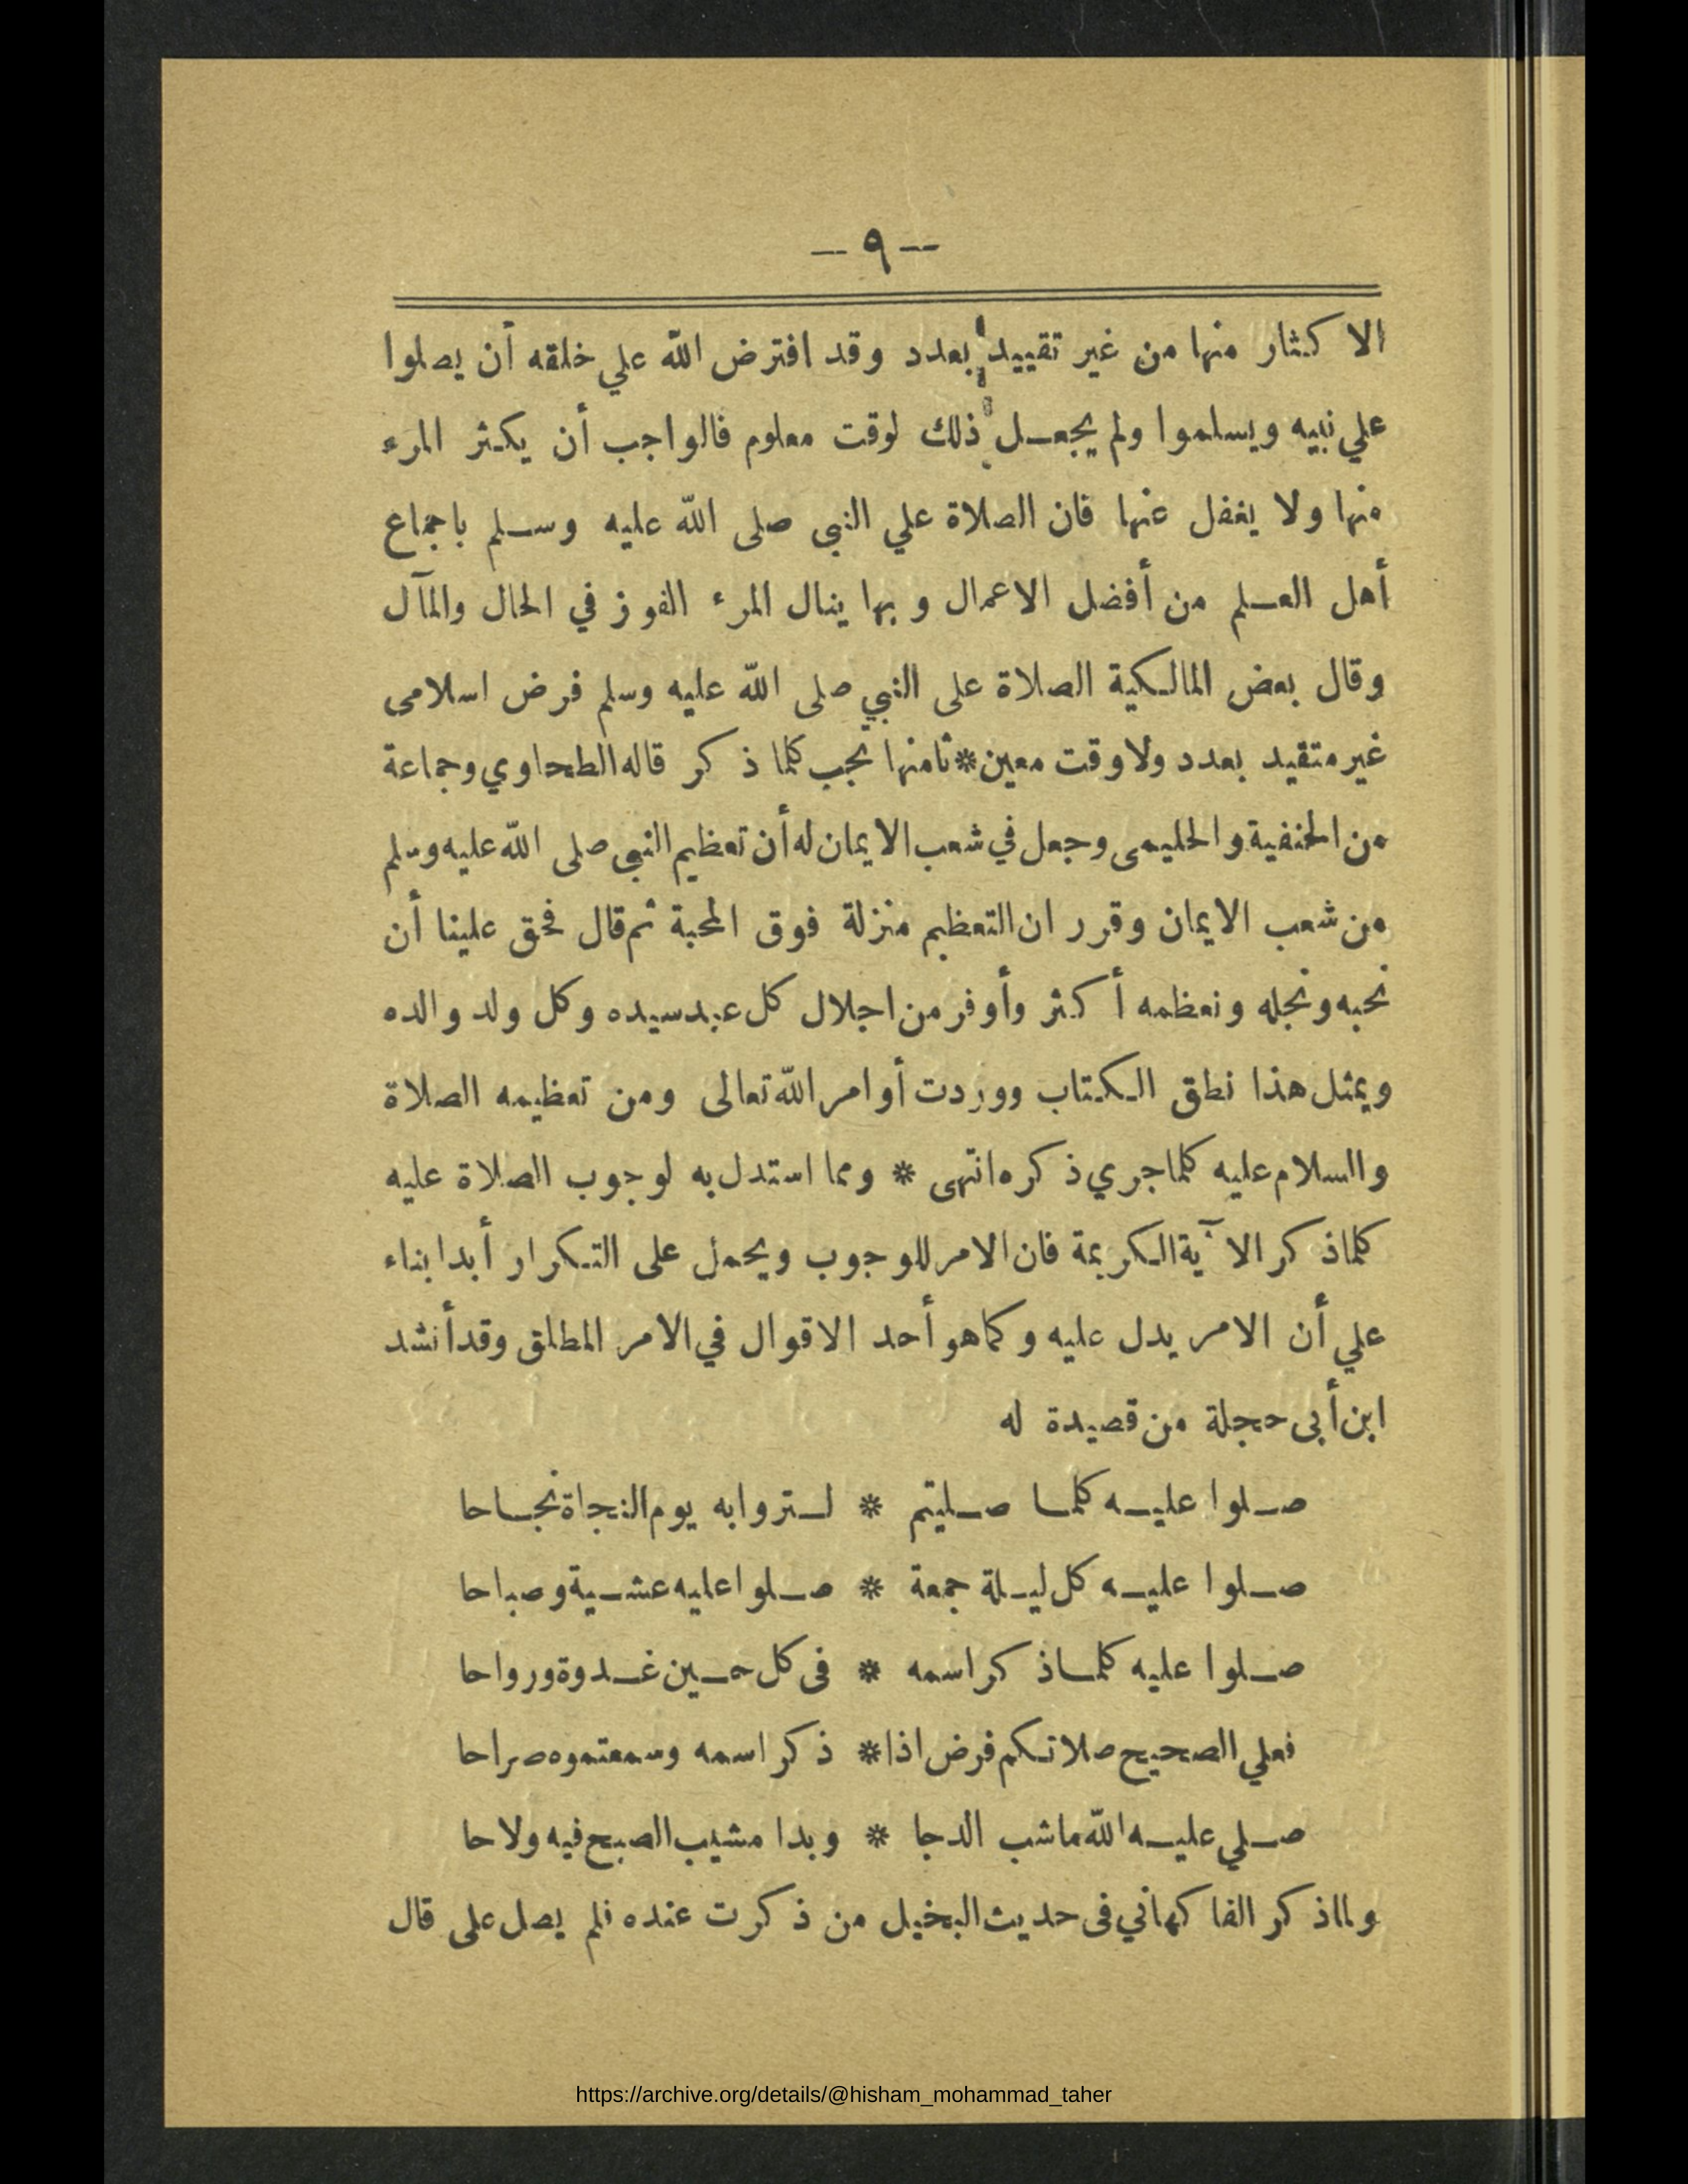 — ٩ —
الاكثار منها من غير تقييد بعدد وقد افترض الله علي خلقه أن يصلوا
علي نبيه ويسلموا ولم يجعل ذلك لوقت معلوم فالواجب أن يكثر المرء
منها ولا يغفل عنها فان الصلاة علي النبى صلى الله عليه وسلم باجماع
أهل العلم من أفضل الاعمال وبها ينال المرء الفوز في الحال والمآل
وقال بعض المالكية الصلاة على النبي صلى الله عليه وسلم فرض اسلامى
غير متقيد بعدد ولا وقت معين * ثامنها يجب كلما ذكر قاله الطحاوي وجماعة
من الحنفية والحليمى وجعل في شعب الايمان له أن تعظيم النبى صلى الله عليه وسلم
من شعب الايمان وقرر ان التعظيم منزلة فوق المحبة ثم قال فحق علينا أن
نحبه ونجله ونعظمه أكثر وأوفر من اجلال كل عبد سيده وكل ولد والده
ويمثل هذا نطق الكتاب ووردت أوامر الله تعالى ومن تعظيمه الصلاة
والسلام عليه كلما جري ذكره انتهى * ومما استدل به لوجوب الصلاة عليه
كلما ذكر الآية الكريمة فان الامر للوجوب ويحمل على التكرار أبدا بناء
علي أن الامر يدل عليه وكما هو أحد الاقوال في الامر المطلق وقد أنشد
ابن أبى حجلة من قصيدة له
صلوا عليه كلما صليتم * لتروا به يوم النجاة نجاحا
صلوا عليه كل ليلة جمعة * صلوا عليه عشية وصباحا
صلوا عليه كلما ذكر اسمه * فى كل حين غدوة ورواحا
فعلي الصحيح صلاتكم فرض اذا * ذكر اسمه وسمعتموه صراحا
صلي عليه الله ماشب الدجا * وبدا مشيب الصبح فيه ولاحا
ولما ذكر الفاكهاني فى حديث البخيل من ذكرت عنده فلم يصل على قال
https://archive.org/details/@hisham_mohammad_taher